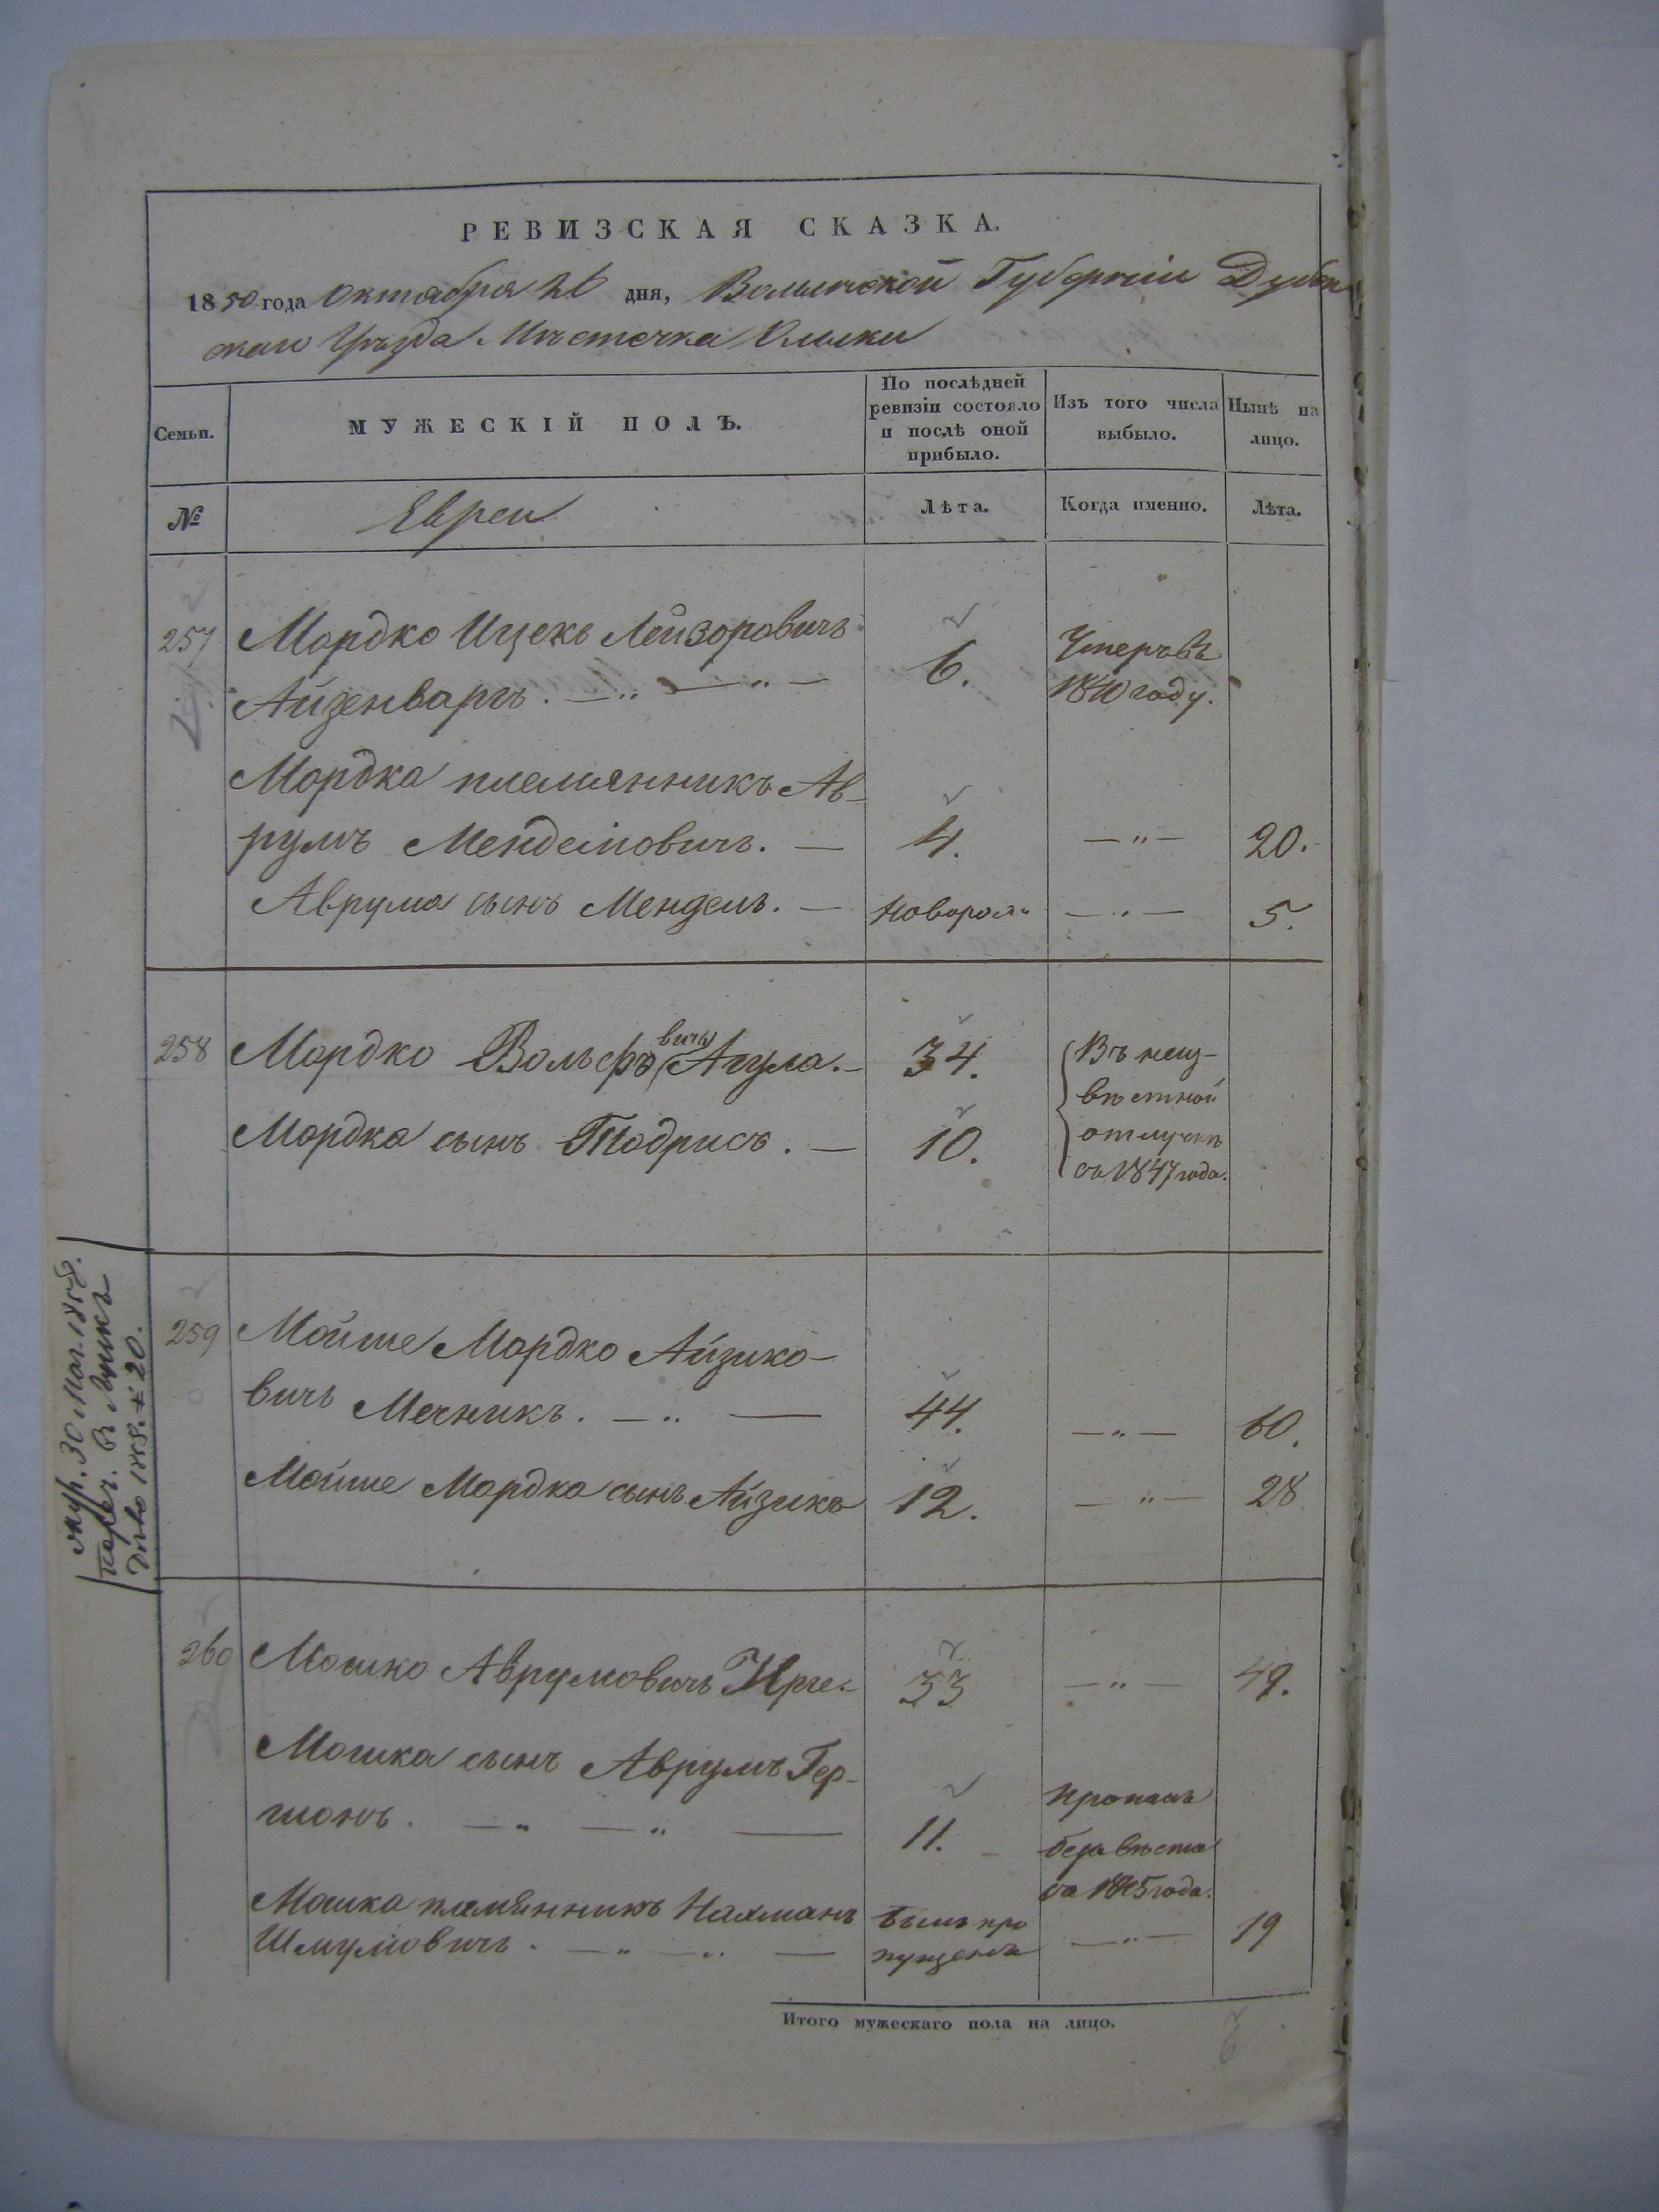 РЕВИЗСКАЯ СКАЗКА.
1850 года Октября 26 дня, Волынской Губерніи Дубен
скаго Уѣзда Мѣстечка Олыки
Семьи.
МУЖЕСКІЙ ПОЛЪ.
По послѣдней ревизіи состояло и послѣ оной прибыло.
Изъ того числа выбыло.
Нынѣ на лицо.
№
Евреи
Лѣта.
Когда именно.
Лѣта.
257 Мордко Ицекъ Лейзоровичъ
Айзенбаргъ. 6. Умеръ въ 1840 году.
Мордка племянникъ Ав-
румъ Менделіовичъ. — 4. — „ — 20.
Аврума сынъ Мендель. — новорож — „ — 5.
258 Мордко Вольфовичъ Агула. — 34. Въ неиз-
вѣстной
Мордка сынъ Тодрисъ. — 10. отлучкѣ
съ 1847 года.
259 Мойше Мордко Айзико-
вичъ Мечникъ. — „ — 44. — „ — 60.
Мойше Мордка сынъ Айзикъ 12. — „ — 28
260 Мошко Аврумовичъ 33 — „ — 49.
Мошка сынъ Аврумъ Гер-
шонъ. — „ — „ — 11. Пропалъ
безъ вѣсти
съ 1845 года.
Мошка племянникъ Нахманъ Былъ про
Шмуліовичъ. — „ — „ — пущенъ — „ — 19
Итого мужескаго пола на лицо.
6